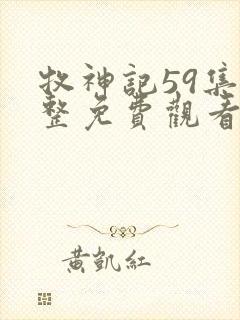 牧神記59集
整免費觀看
黃凱紅